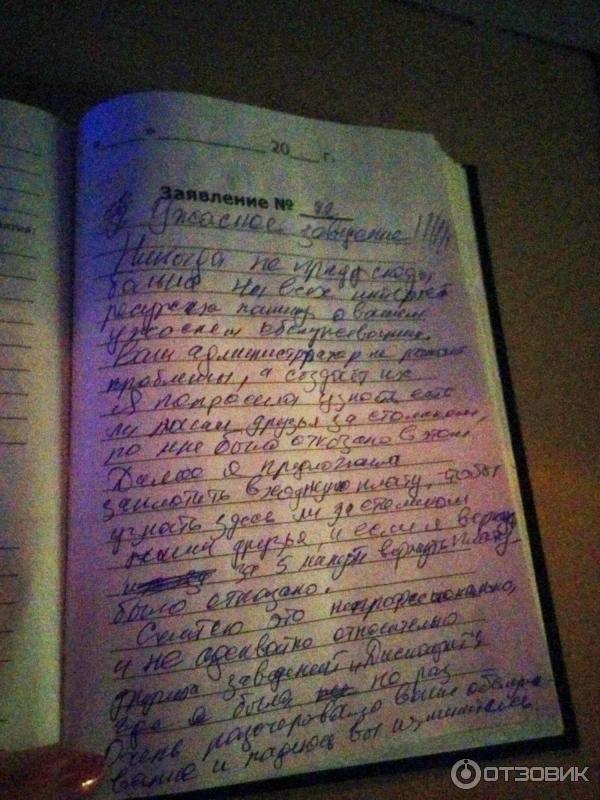 « » 20 г.
Заявление № 42
Ужасное заведение!!!!!!
Никогда не приду сюда,
больше. На всех интернет
ресурсах пишу о вашем
ужасном обслуживании.
Ваш администратор не решает
проблемы, а создаёт их
Я попросила узнать есть
ли наши друзья за столиком,
но мне было отказано в этом
Далее я предложила
заплатить входную плату, чтобы
узнать здесь ли за столиком
наши друзья и если я вернусь
за 5 минут вернуть плату
было отказано.
Считаю это непрофессионально,
и не адекватно относительно
других заведений
где я была не раз
Очень разочарована ваши обслужи-
вание и надеюсь вы изменитесь.
ОТЗОВИК